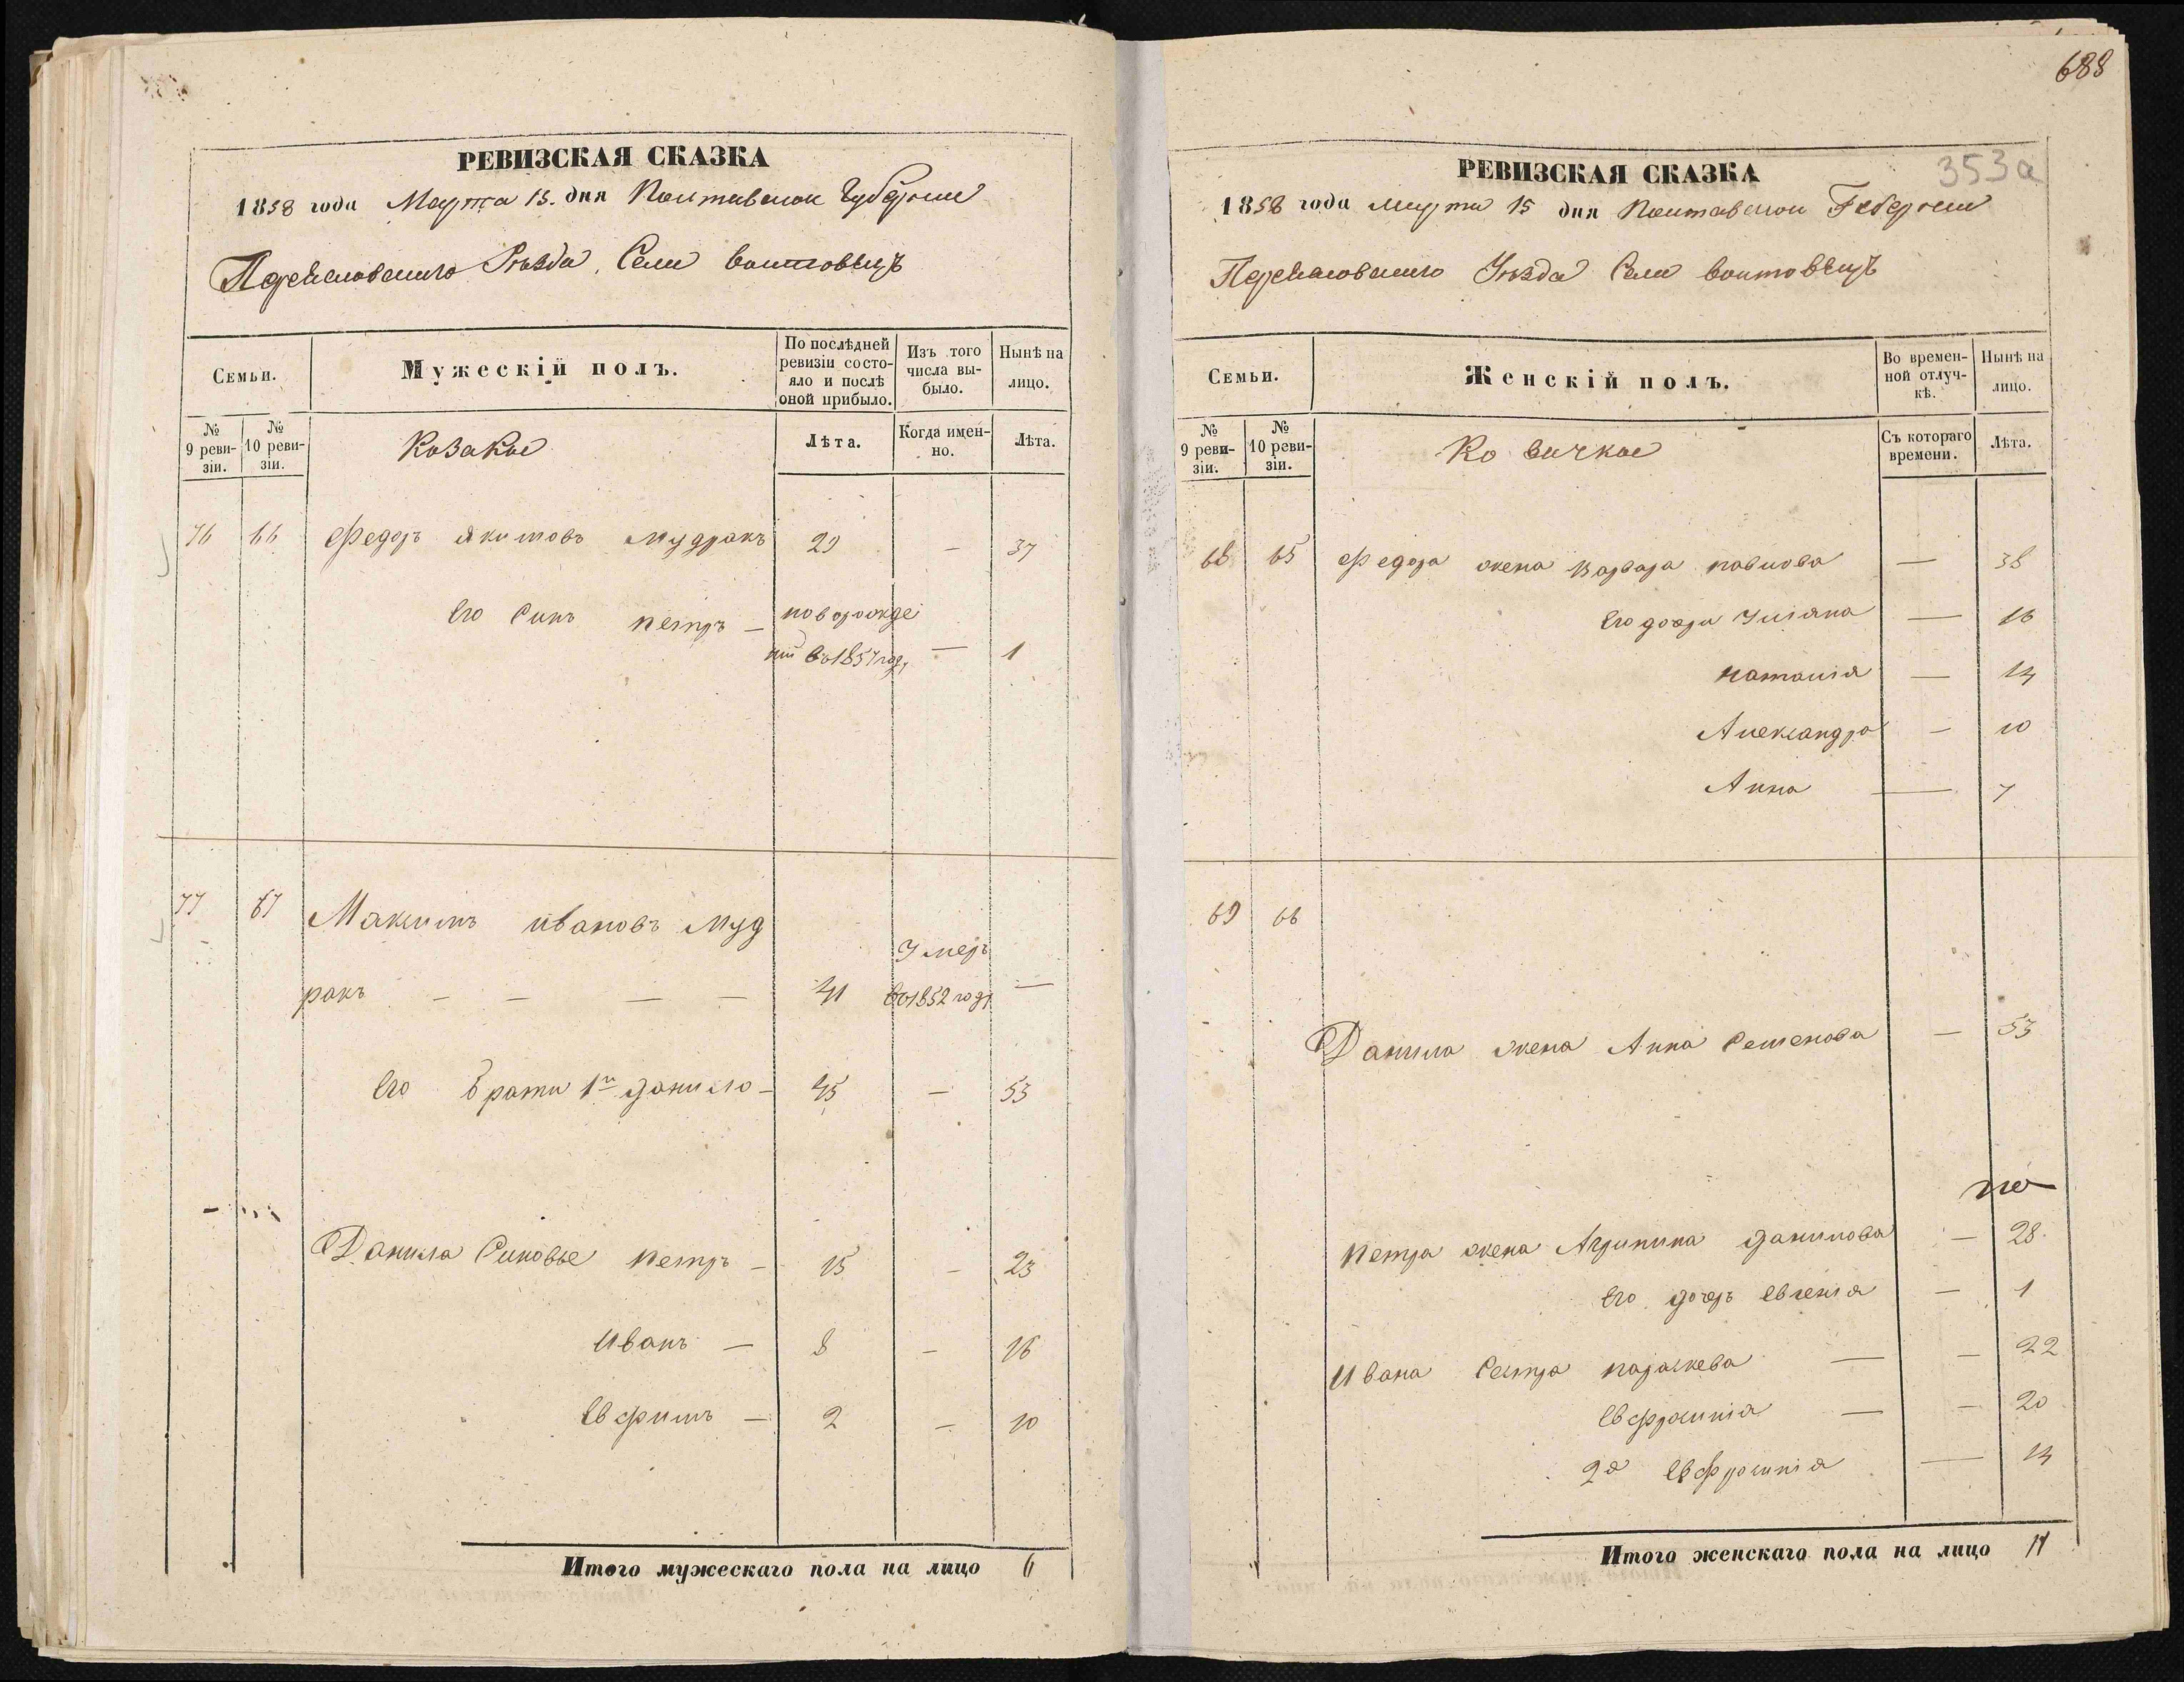 РЕВИЗСКАЯ СКАЗКА
1858 года Марта 15. дня Полтавской Губернии
Переяславского Уѣзда, Села воитовецъ
Семьи.
Мужескій полъ.
По послѣдней ревизіи состояло и послѣ оной прибыло.
Изъ того числа выбыло.
Нынѣ на лицо.
№ 9 ревизіи.
№ 10 ревизіи.
Козакы
Лѣта.
Когда именно.
Лѣта.
76 66 Федоръ якимовъ мудракъ 29 — 37
Его Синъ петръ — новорожде
ний въ 1857 году — 1
77 67 Максимъ ивановъ Муд
Умеръ
ракъ — — — — 41 въ 1852 году —
Его брати 1й данило — 45 — 53
Данила Синовье петръ — 15 — 23
Иванъ — 8 — 16
Евфимъ — 2 — 10
Итого мужескаго пола на лицо 6
688
353а
РЕВИЗСКАЯ СКАЗКА
1858 года марта 15 дня Полтавской Губернии
Переяславского Уѣзда Села воитовецъ
Семьи.
Женскій полъ.
Во временной отлучкѣ.
Нынѣ на лицо.
№ 9 ревизіи.
№ 10 ревизіи.
Съ котораго времени.
Лѣта.
68 65 Федора жена варвара павлова — 38
Его дочери Улiяна — 16
наталiя — 14
Александра — 10
Анна — 7
69 66
Данила жена Анна Семенова — 53
Петра жена Агрипина данилова — 28
Его дочеръ евгенiя — 1
Ивана Сестра параскева — — 22
Евфросинiя — — 20
2я Евфросинiя — 14
Итого женскаго пола на лицо 11